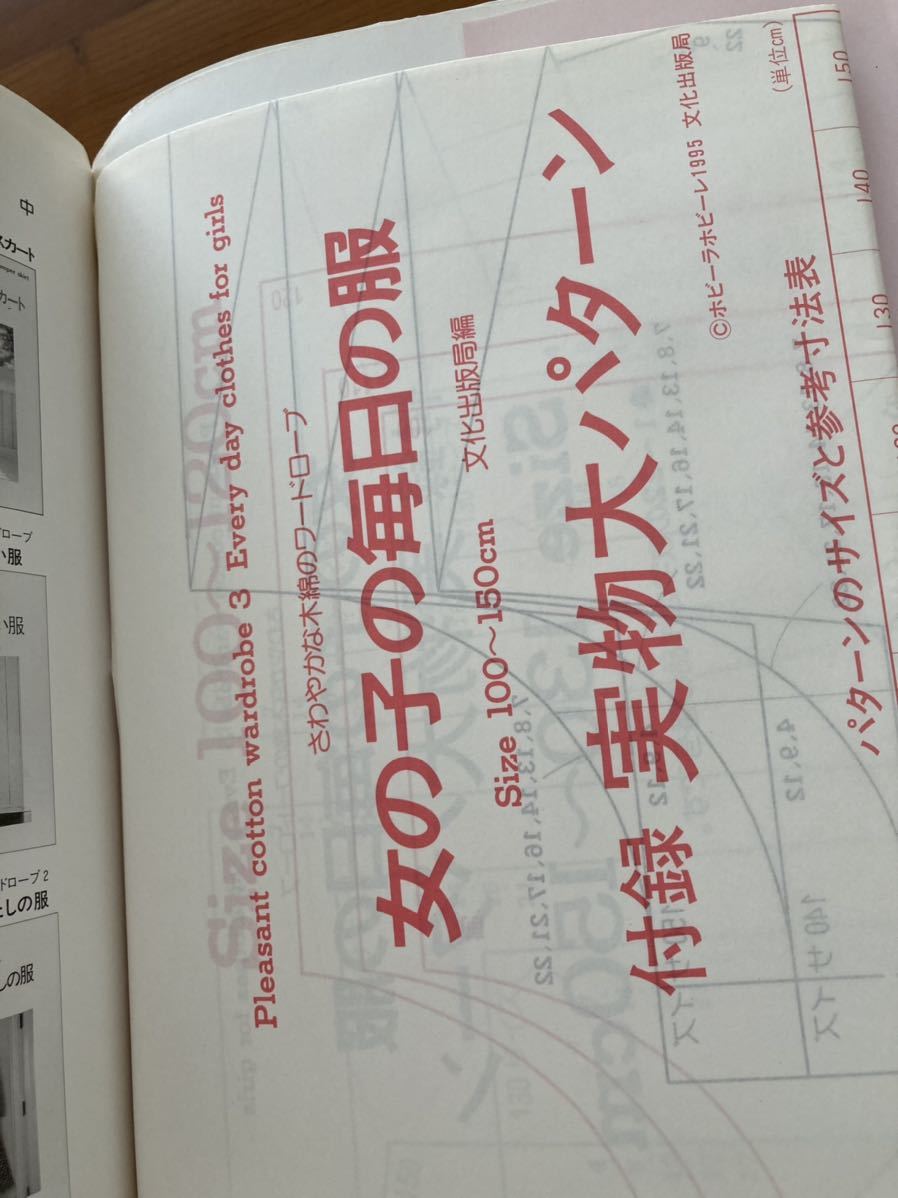 Pleasant cotton wardrobe 3 Every day clothes for girls
さわやかな木綿のワードローブ
女の子の毎日の服
文化出版局編
Size 100〜150cm
付録 実物大パターン
©ホビーラホビーレ1995 文化出版局
パターンのサイズと参考寸法表
(単位cm)
150
140
130
7,8,13,14,16,17,21,22
7,8,13,14,16,17,21,22
4,9,12
140サイズ
スカート
カート
ドローブ
い服
い服
ドローブ 2
しの服
しの服